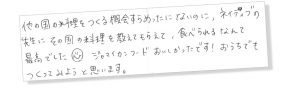 他の国の料理をつくる機会すらめったにないのに、ネイティブの
先生にその国の料理を教えてもらえて、食べられるなんて
最高でした ジャマイカンフードおいしかったです！おうちでも
つくってみようと思います。